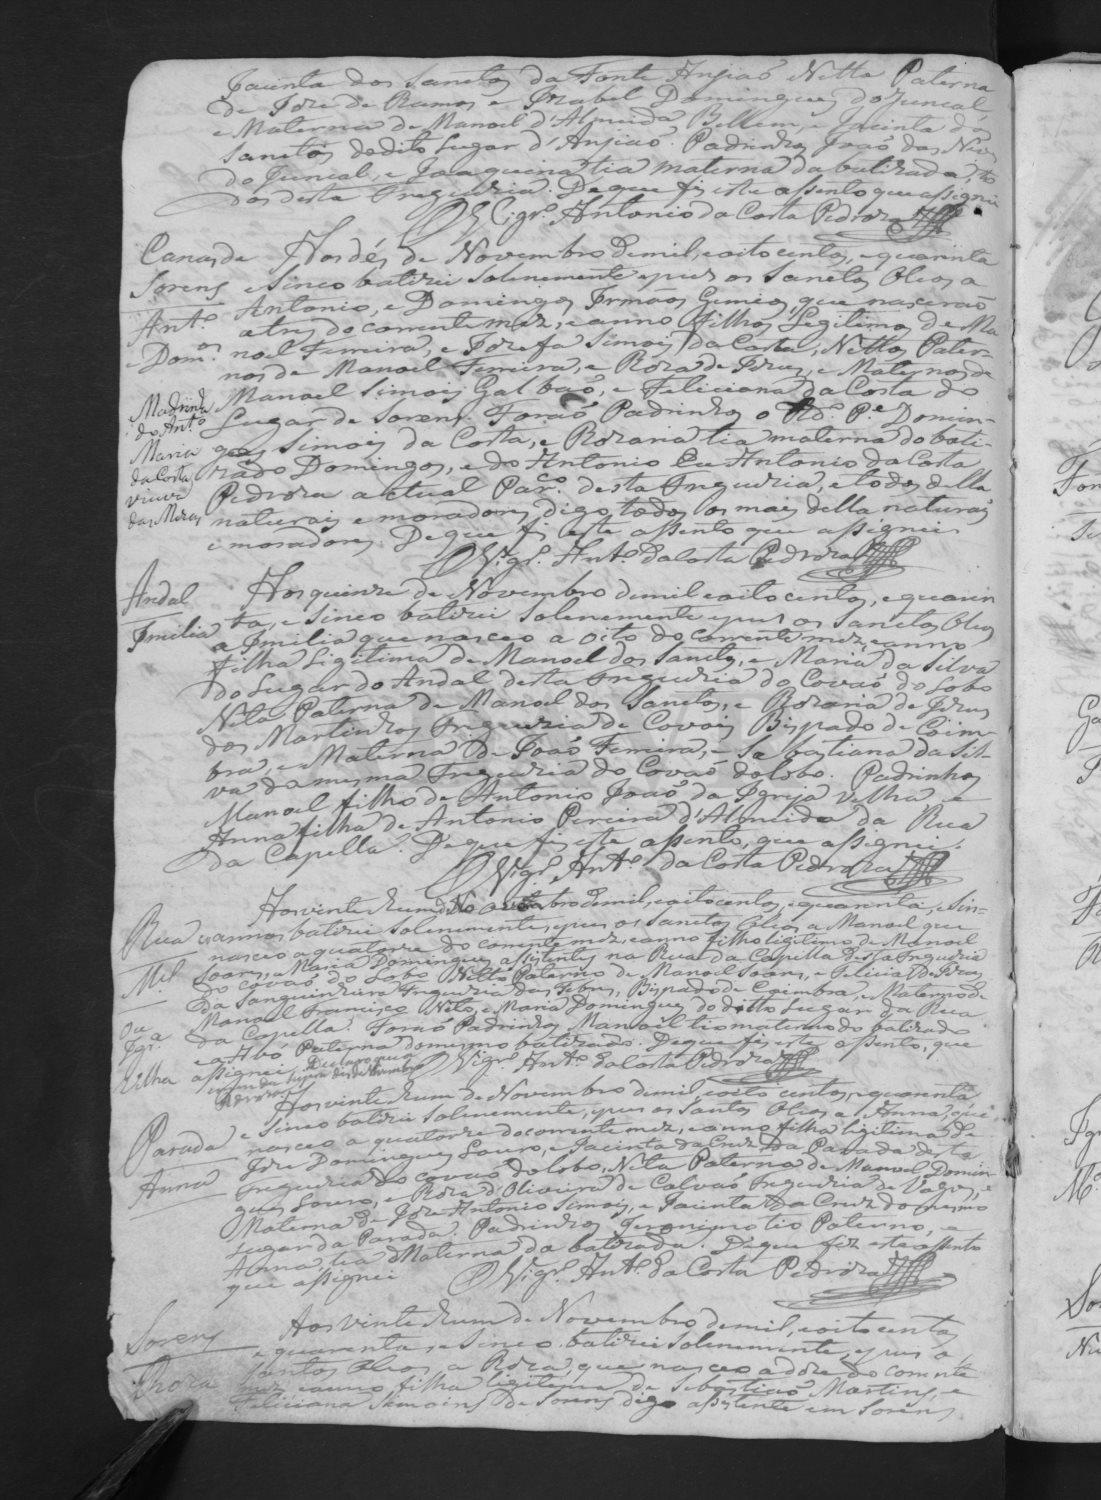 Jacinta dos Sanctos da Fonte Anjiaõ Netta Paterna
de Joze de Ramos e Izabel Domingues do Juncal
e Materna de Manoel d'Almeida Bellem, e Jacinta dos
Sanctos dedito Lugar d'Anjiaõ. Padrinhos Joaõ das Neves
do Juncal, e Joaquina tia materna da batizada to
dos desta Freguezia. De que fiz este assento que assignei
O Vigr.º Antonio da Costa Pedroza
Canas de
Sorens
Ant.º
Dom.os
Madrinha
do Ant.º
Maria
da Costa
viuva
das Meras
Aos dés de Novembro de mil, e oito centos, e quarenta
e sinco batizei solenemente e puz os Sanctos Oleos a
Antonio, e Domingos Irmãos Gemeos, que nascerão
a tres do corrente mez, e anno filhos Legitimos de Ma
noel Ferreira, e Jozefa Simois da Costa, Nettos Pater-
nos de Manoel Ferreira, e Roza de Jezus, e Maternos de
Manoel Simois Galbaõ, e Feliciana da Costa do
Lugar de Sorens. Foraõ Padrinhos o Rd.º P.e Domin-
gos Simois da Costa, e Rozaria tia materna do bati-
zado Domingos, e do Antonio Eu Antonio da Costa
Pedroza actual Par.co desta Freguezia, e todos della
naturais e moradores, digo todos os mais della naturais
e moradores. De que fiz este assento que assignei
O Vigr.º Ant.º da Costa Pedroza
Andal
Imilia
Aos quinze de Novembro de mil e oito centos, e quaren
ta, e sinco batizei solenemente e puz os Sanctos Oleos
a Imilia que nasceo a oito do corrente mez, e anno
filha Ligitima de Manoel dos Sanctos, e Maria da Silva
do Lugar do Andal desta Freguezia do Covaõ do Lobo
Neta Paterna de Manoel dos Sanctos, e Rozaria de Jezus
dos Martinhos Freguezia de Covois Bispado de Coim-
bra, e Materna de Joaõ Ferreira, e Sebastiana da Sil-
va da mesma Freguezia do Covaõ do Lobo. Padrinhos
Manoel filho de Antonio Joaõ da Igrija velha e
Anna filha de Antonio Pereira d'Almeida da Rua
da Capella. De que fiz este assento, que assignei.
O Vigr.º Ant.º da Costa Pedroza
Rua
M.el
da
Igr.a
Vilha
Aos vinte e hum de Novembro de mil, e oito centos, e quarenta, e sin-
co annos batizei solenemente, e puz os Sanctos Oleos a Manoel que
nasceo a quatorze do corrente mez, e anno filho ligitimo de Manoel
Soares, e Maria Domingues assistentes na Rua da Capella desta Freguezia
do Covaõ do Lobo Netto Paterno de Manoel Soares, e Felicia de Jezus
da Sanguinheira Freguezia das Febres, Bispado de Coimbra, e Materno de
Manoel Francisco Neto, e Maria Domingues do ditto Lugar da Rua
da Capella. Foraõ Padrinhos Manoel tio materno do batizado
e a Abó Paterna do mesmo batizado. De que fiz este assento, que
assignei. Declaro que a
O Vigr.º Ant.º da Costa Pedroza
Pedroza
Parada
Anna
Aos vinte e hum de Novembro de mil, e oito centos, e quarenta
e sinco batizei solenemente, e puz os Santos Oleos a Anna, que
nasceo a quatorze do corrente mez, e anno filha ligitima de
Joze Domingues Louro, e Jacinta da Cruz da Parada desta
Freguezia do Covaõ do Lobo, Neta Paterna de Manoel Domin
gues Louro, e Roza d'Oliveira de Calvaõ Freguezia de Vagos, e
Materna de Joze Antonio Simois, e Jacinta da Cruz do mesmo
Lugar da Parada. Padrinhos Jeronimo tio Paterno, e
Anna, tia Materna da batizada. De que fiz este assento
que assignei
O Vigr.º Ant.º da Costa Pedroza
Sorens
Roza
Aos vinte e hum de Novembro de mil, e oito centos
e quarenta, e sinco batizei solenemente, e puz os
Santos Oleos a Roza, que nasceo a doze do corrente
mez, e anno filha ligitima de Sebastiaõ Martins, e
Feliciana Simoins de Sorens digo assistente em Sorens